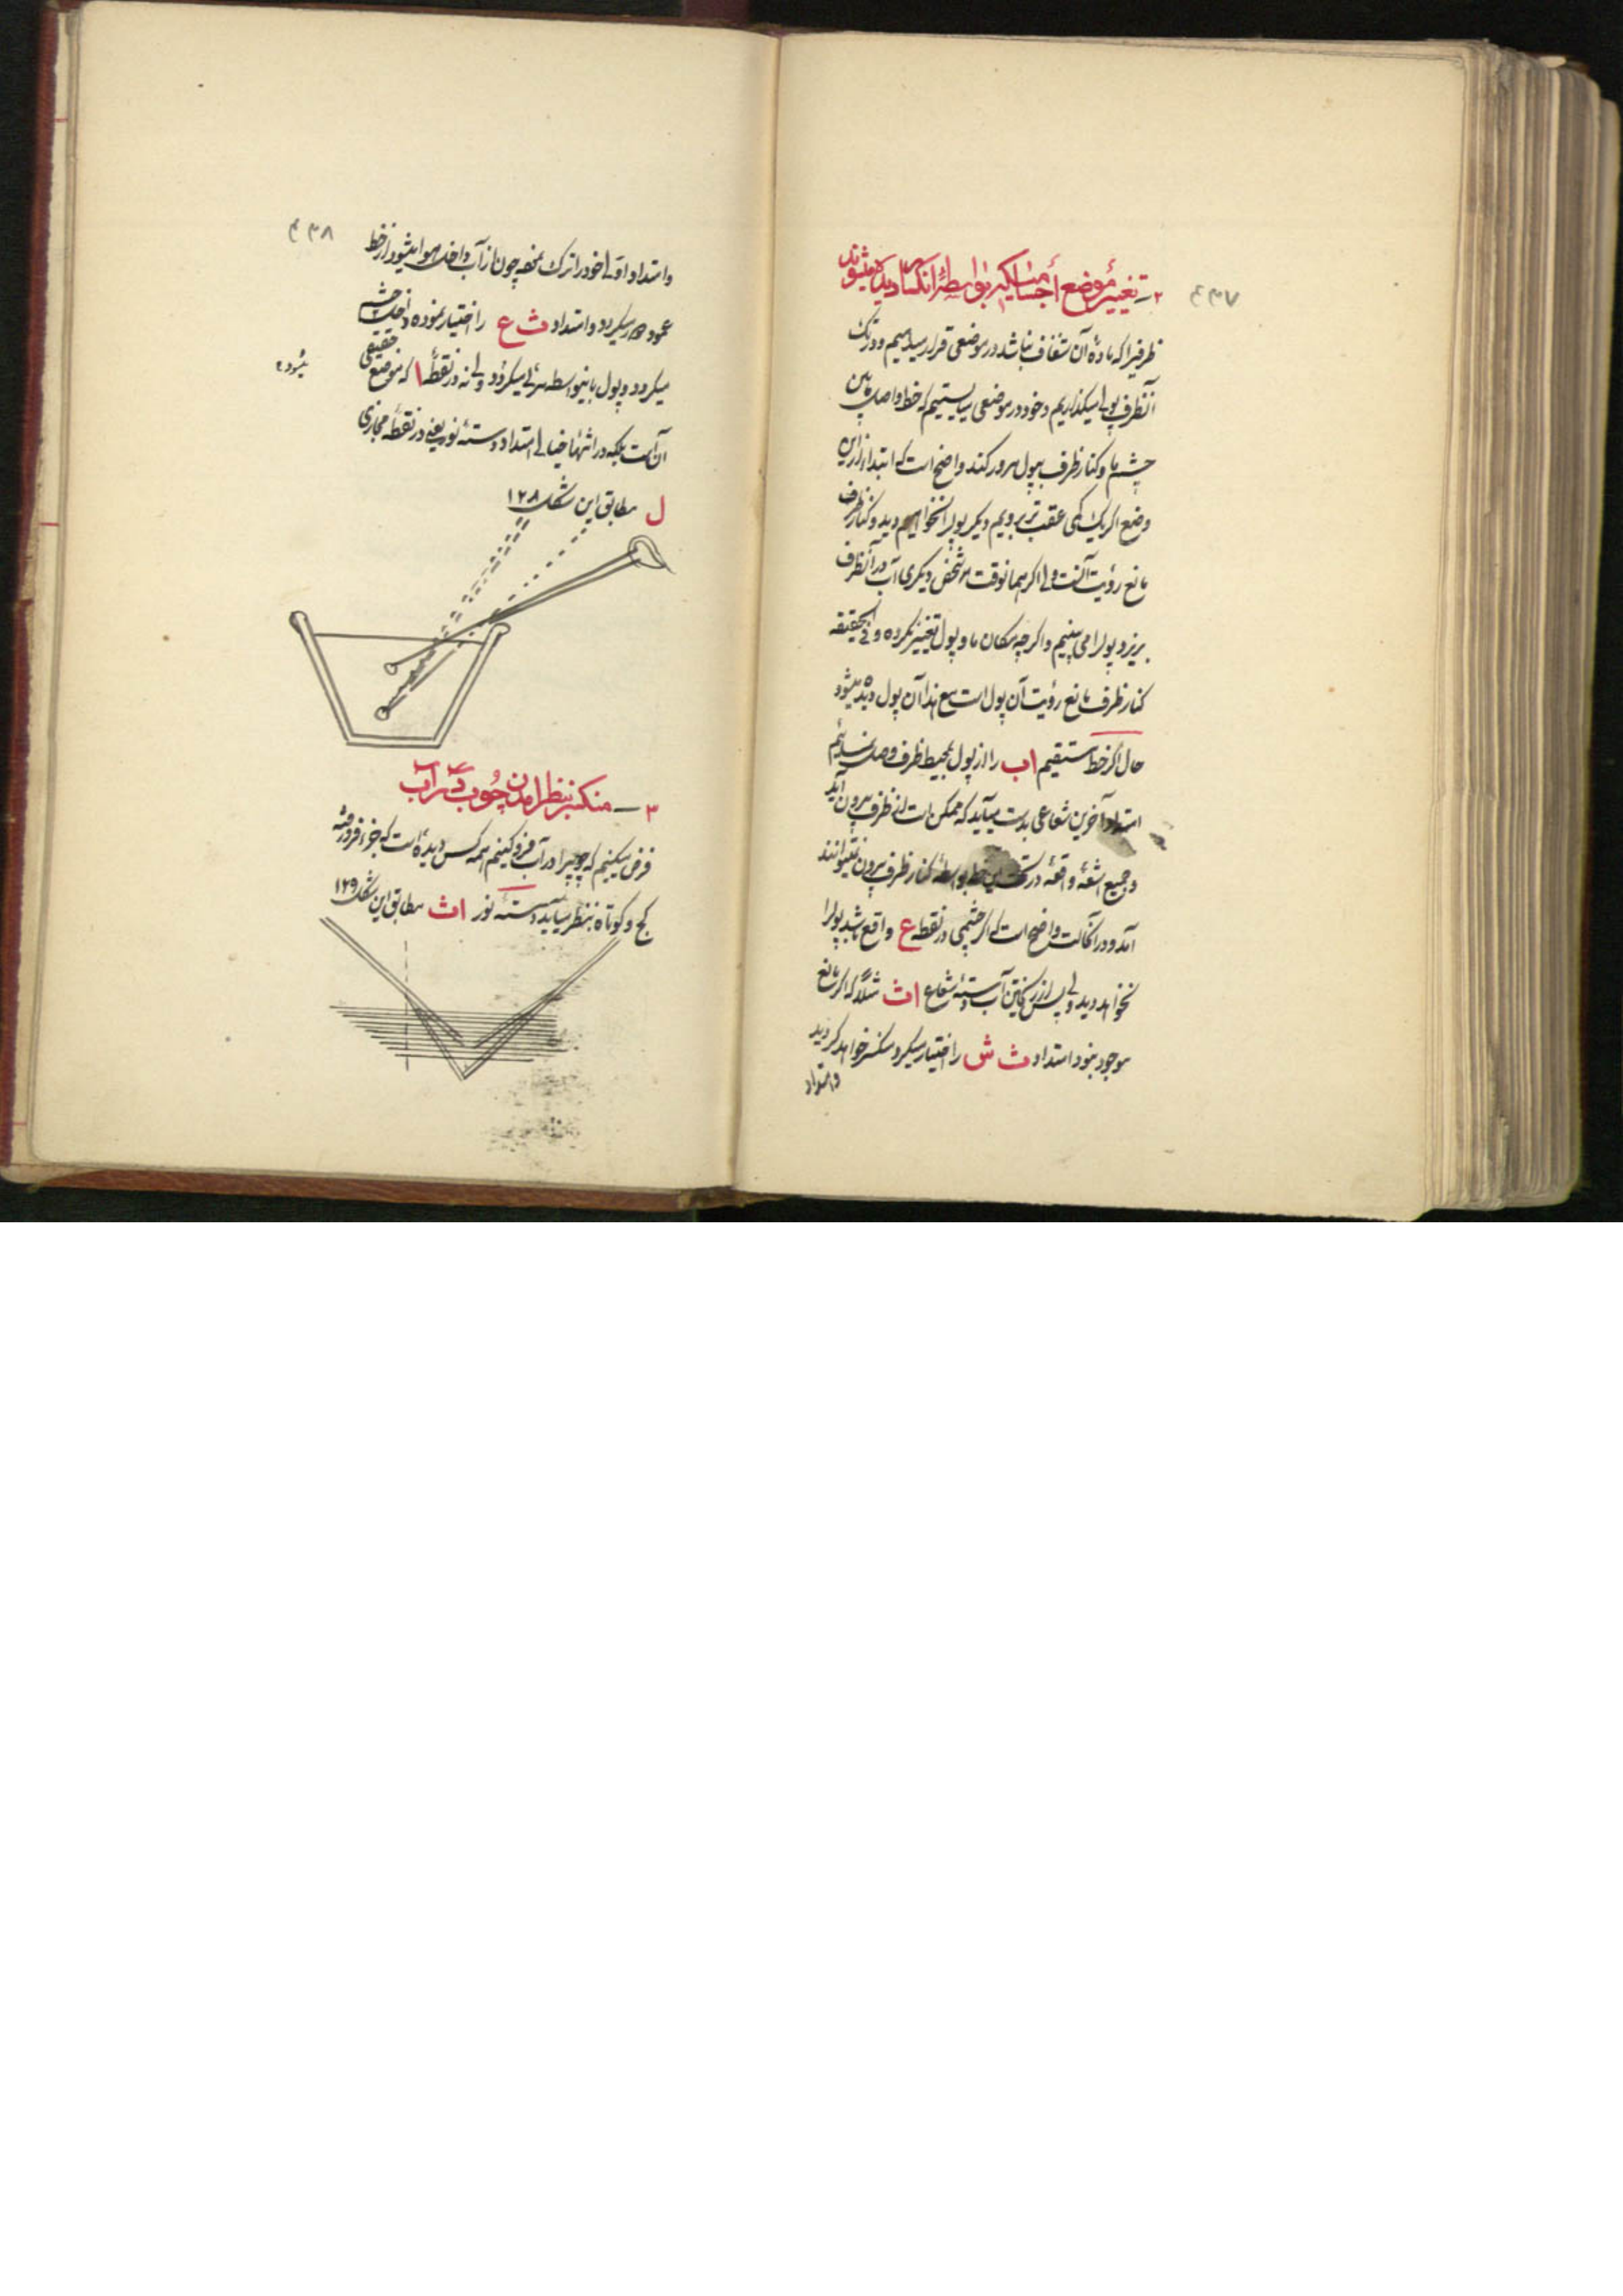 ۴۳۷
۲ – تغییر موضع اجسامیکه بواسطهٔ انکسار دیده میشوند
ظرفیرا که مادهٔ آن شفاف نباشد در موضعی قرار میدهیم و در تک
آنظرف پولی میگذاریم و خود در موضعی میایستیم که خط واصل مابین
چشم ما و کنار ظرف بپول مرور کند واضح است که ابتدا از این
وضع اگر یک کمی عقب تر برویم دیگر پول را نخواهیم دید و کنار ظرف
مانع رؤیت آنست ولی اگر همانوقت شخص دیگری آب در آنظرف
بریزد پول را می بینیم و اگرچه مکان ما و پول تغییر نکرده و فی الحقیقه
کنار ظرف مانع رؤیت آن پول است مع هذا آن پول دیده میشود
حال اگر خط مستقیم اب را از پول بمحیط ظرف وصل نمائیم
امتداد آخرین شعاعی بدست میآید که ممکن است از ظرف بیرون آید
و جمیع اشعهٔ واقعه در تحت این خط بواسطهٔ کنار ظرف بیرون نمیتوانند
آمد و در آنحالت واضح است که اگر چشمی در نقطه ع واقع باشد پول را
نخواهد دید ولی پس از ریختن آب دستهٔ شعاع اث مثلا که اگر مانع
موجود نبود امتداد ث ش را اختیار میکرد منکسر خواهد گردید
و امتداد
۴۳۸
و امتداد اولی خود را ترک نموده چون از آب داخل هوا میشود از خط
عمود دور میگردد و امتداد ث ع را اختیار نموده داخل چشم
میگردد و پول باینواسطه مرئی میگردد ولی نه در نقطهٔ ا که موضع حقیقی
آن است بلکه در انتهای خیالی امتداد دستهٔ نور یعنی در نقطه مجازی
میشود
ل مطابق این شکل ۱۲۸
۳ – منکسر بنظر آمدن چوب در آب
فرض میکنیم که چوبیرا در آب فرو کنیم همه کس دیده است که جزء فرو رفته
کج و کوتاه بنظر میآید دستهٔ نور اث مطابق این شکل ۱۲۹